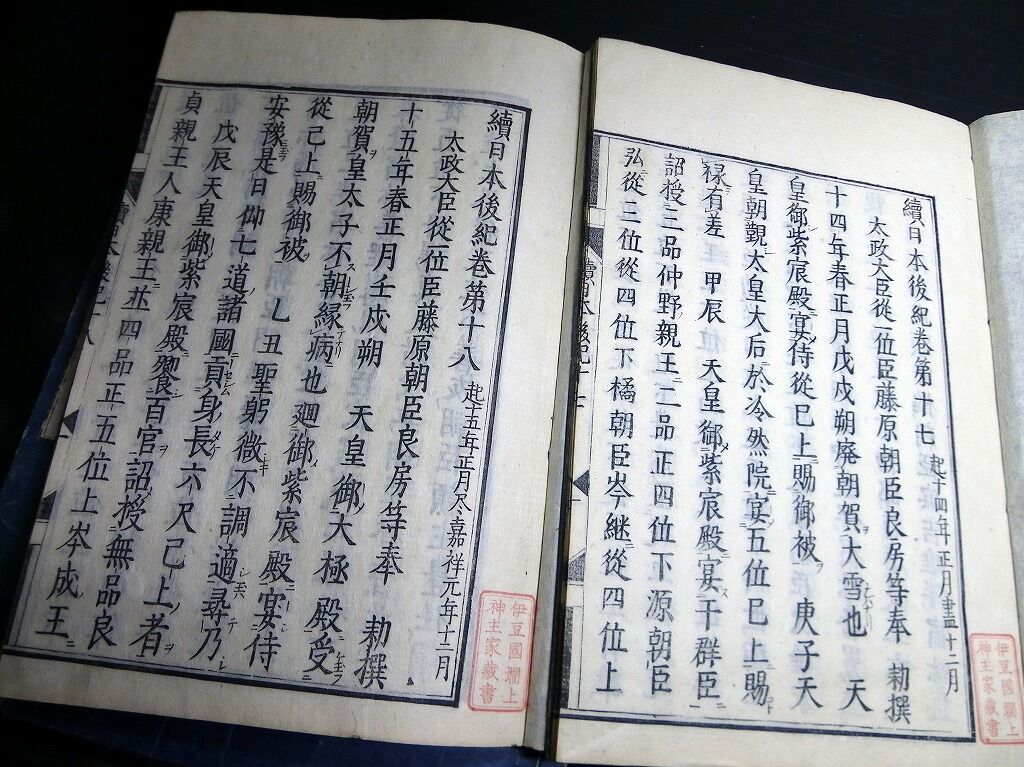 續日本後紀巻第十七 起十四年正月盡十二月
太政大臣從一位臣藤原朝臣良房等奉 勑撰
十四年春正月戊戌朔廃朝賀大雪也 天
皇御紫宸殿宴侍從已上賜御被 庚子天
皇朝覲太皇大后於冷然院宴五位已上賜
禄有差 甲辰 天皇御紫宸殿宴于群臣
詔授三品仲野親王二品正四位下源朝臣
弘從三位從四位下橘朝臣岑継從四位上
伊豆國 上
神主家蔵書
續日本後紀巻第十八 起十五年正月尽嘉祥元年十二月
太政大臣從一位臣藤原朝臣良房等奉 勑撰
十五年春正月壬戌朔 天皇御大極殿受
朝賀皇太子不朝縁病也廻御紫宸殿宴侍
從已上賜御被 乙丑聖躬微不調適尋乃
安豫是日仰七道諸國貢身長六尺已上者
戊辰天皇御紫宸殿饗百官詔授無品良
貞親王人康親王並四品正五位上岑成王
伊豆國 上
神主家蔵書